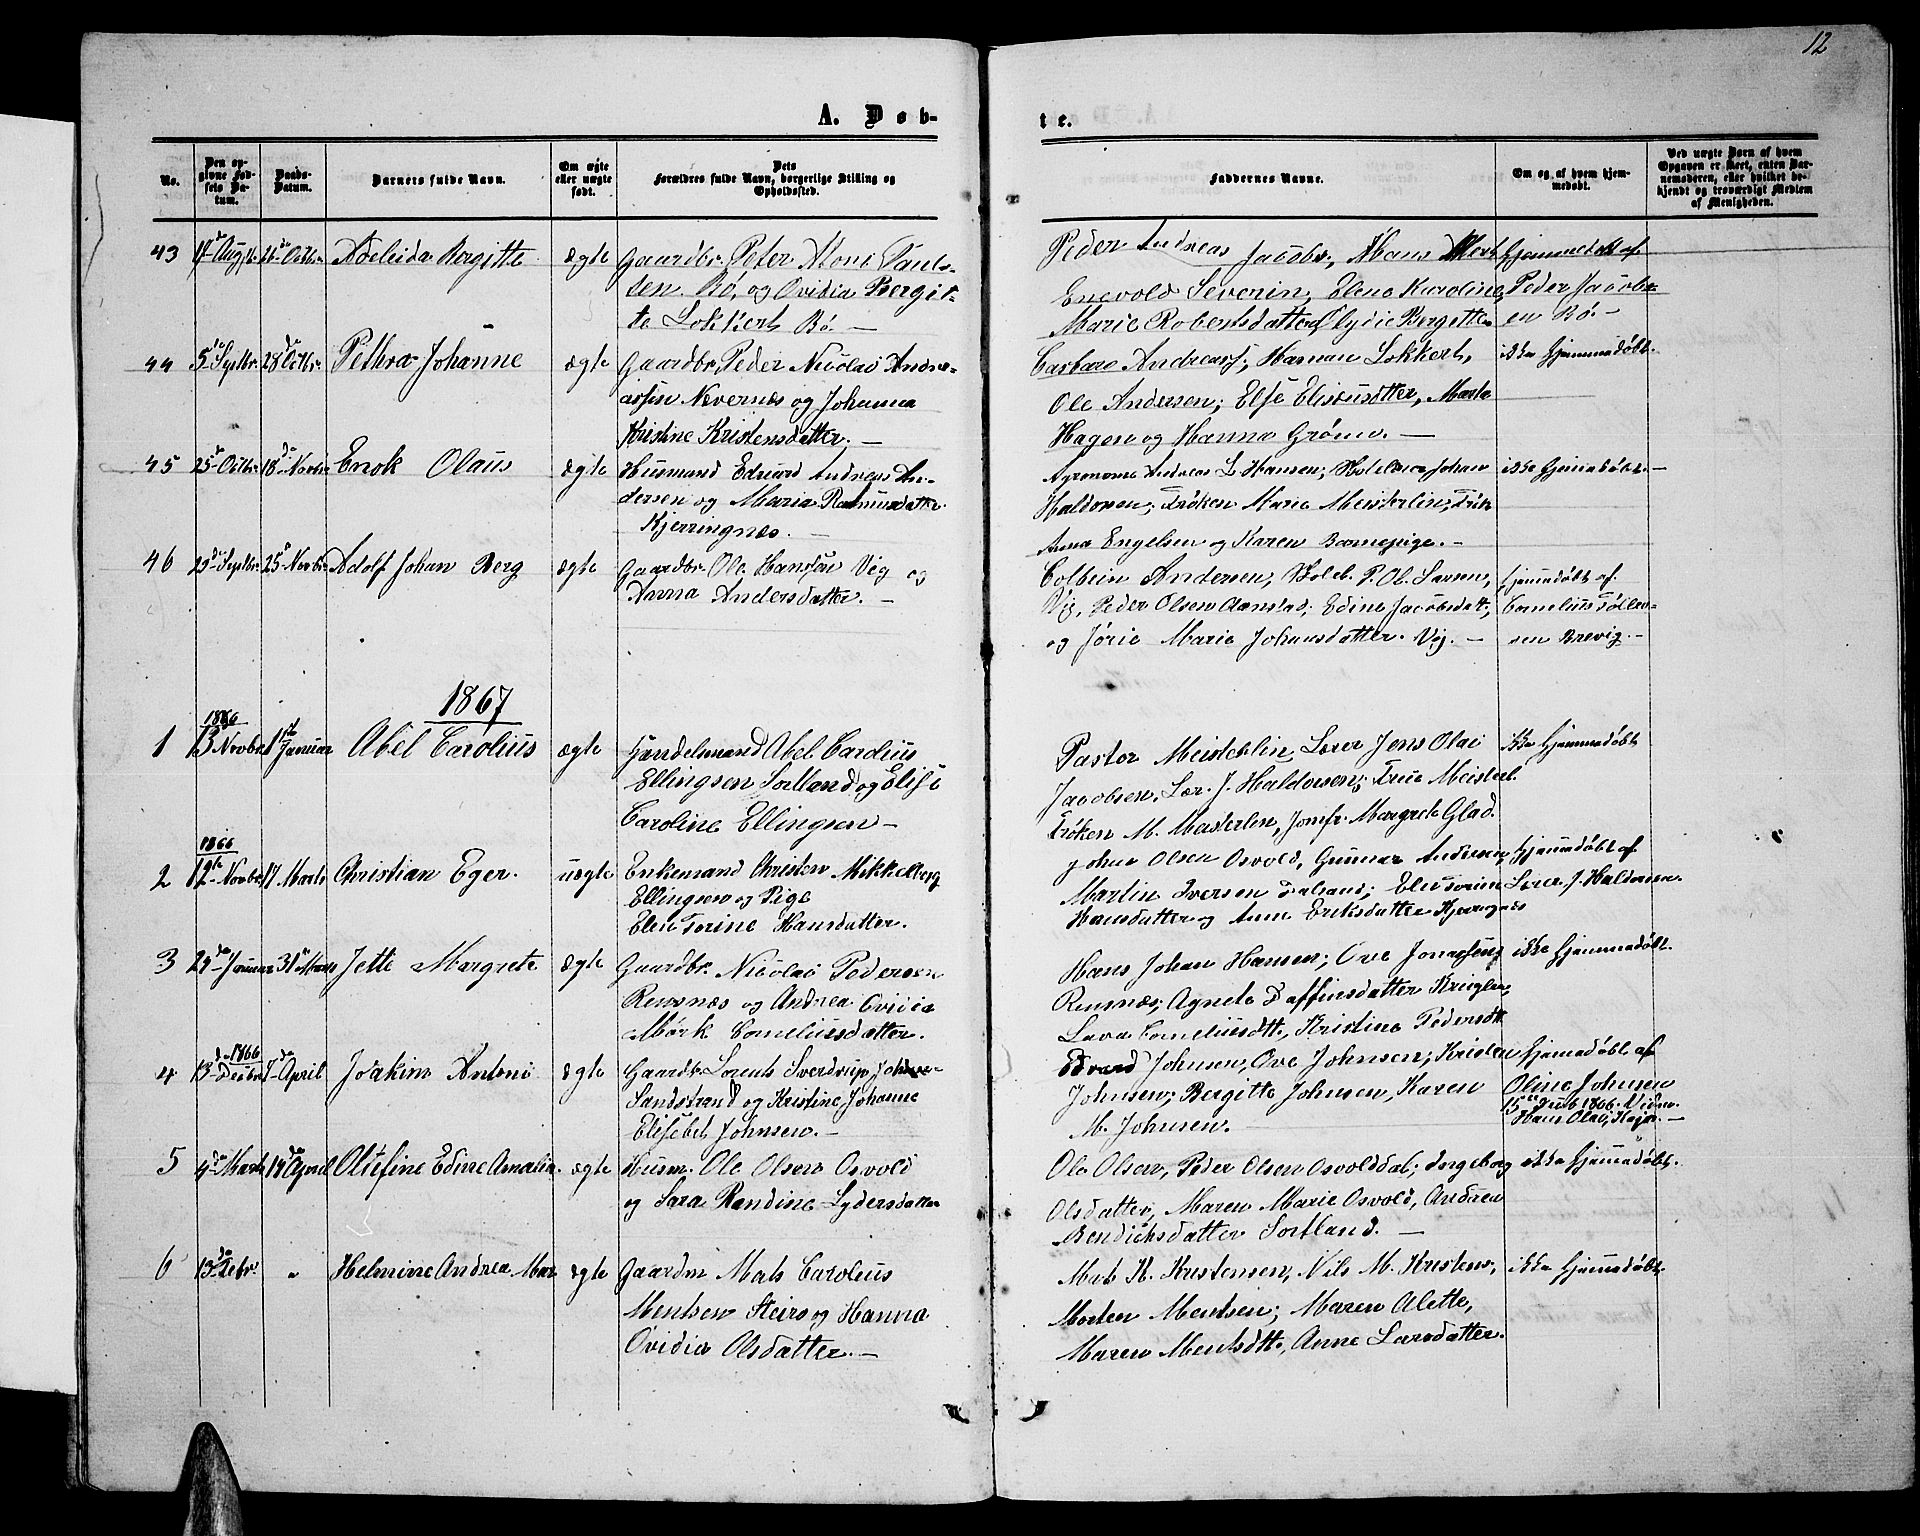 12
A. Døb-
te.
No.
Den op-
givne Fød-
sels Da-
tum.
Daabs-
Datum.
Barnets fulde Navn.
Om ægte
eller uægte
født.
Dets
Forældres fulde Navn, borgerlige Stilling og
Opholdssted.
Faddernes Navne.
Om og af hvem hjem-
medøbt.
Ved uægte Børn af hvem
Opgaven er skeet, enten Bar-
nemoderen, eller hvilket be-
kjendt og troværdigt Medlem
af Menigheden.
43 26de Octbr. Adeleida Bergitte ægte Gaardbr. Peter Atoni Pauls-
sen Bø, og Ovidia Bergit-
te Lokkert Bø. —
Peder Andreas Jacobs, Hans
Enevold Severin, Elen Karoline,
Marie Robertsdatter, Olydie Bergette
Hjemmedøbt af
Peder Jacobs-
en Bø. -
44 5te Septbr. 28de Octbr. Pethra Johanne ægte Gaardbr. Peder Nicolai Andre-
assen Nevernes og Johanna
Kristine Kristensdatter. —
Andreass; Haman Lokkert,
Ole Andersen; Else Elisæusdtter, Marta
Hagen og Hanna Grønn. —
ikke Hjemmedøbt.
45 25de Octbr. 18de Novbr. Enok Olaus ægte Husmand Edvard Andreas An-
dersen og Maria Rasmusdatter
Kjerringnes. —
Agronome Andreas L. Hansen; Skolelærer Johan
Haldorsen; Frøken Marie Meisterlin; Frøk
Anna Engelsen og Karen Barnepige. -
ikke Hjemmedøbt. —
46 25de Novbr. Adolf Johan Berg ægte Gaardbr. Ole Hansen Vig og
Anna Andersdatter. —
Colbein Andersen, Skoleh. P. Ol. Larsen,
Vig, Peder Olsen Aanstad; Edine Jacobsdatt;
og Jørie Marie Johansdatter. Vig. —
hjemmedøbt af.
Cornelius Tølløv-
sen Brevig. -
1867
1866
1 13 Novbr. 1ste Januar Abel Carolius ægte Handelsmand Abel Carolius
Ellingsen Sortland og Elise
Caroline Ellingsen —
Pastor Meisterlin, Lærer Jens Olai
Jacobsen, Lær. J. Haldorsen; Frue Meisterl.
Frøken M. Meisterlin, Jomfr. Margrete Glad.
ikke Hjemmedøbt
1866
2 12te Novbr. 17 Marts Christian Eger. uægte Enkemand Christen Mikkelberg
Ellingsen og Pige
Elen Torine Hansdatter.
Johan Olsen Osvold, Gunnar Andersen,
Martin Iversen Dalsand; Elen Torine
Hansdatter og Ane Eriksdatter Kjerringnes
Hjemmedøbt af
Lærer J. Haldorsen.
3 29de Januar 31te Marts Jette Margrete ægte Gaardbr. Nicolai Pedersen
Rensnæs og Andrea Ovidia
Mørk Corneliusdatter.
Hans Johan Hansen; Ove Jonassen
Rensnæs, Agnete Daffinsdatter Kringlen
Lava Corneliusdtt., Kristine Pedersdt.
ikke Hjemmedøbt.
4 13de 1866 Decbr. 7de April Joakim Antoni ægte Gaardbr. Lorents Sverdrup Johnsen
Sandstrand og Kristine Johanne
Elisebet Johnsen. —
Edvard Johnsen, Ove Johnsen; Kristen
Johnsen; Bergitte Johnsen, Karen
M. Johnsen.
hjemmedøbt af
Oline Johnsen
15de Decb 1866. Vidn.
Hans Olai
5 4de Marts 19de April Oltefine Edine Amalia. ægte Husm. Ole Olsen Osvold
og Sara Rendine Lydersdatter
Ole Olsen, Peder Olsen Osvolddal; Ingeborg
Olsdatter, Maren Marie Osvold, Andrea
Bendicksdatter Sortland. —
ikke Hjemmedøbt.
6 13de Febr. " Helmine Andrea Mar. ægte Gaardm Mats Carolius
Mentsen Steiro og Hanna
Ovidia Olsdatter. —
Mats K. Kristensen, Nils M. Kristens,
Morten Mentsen; Maren Alette,
Maren Mentsdtt., Anne Larsdatter.
ikke Hjemmedøbt.